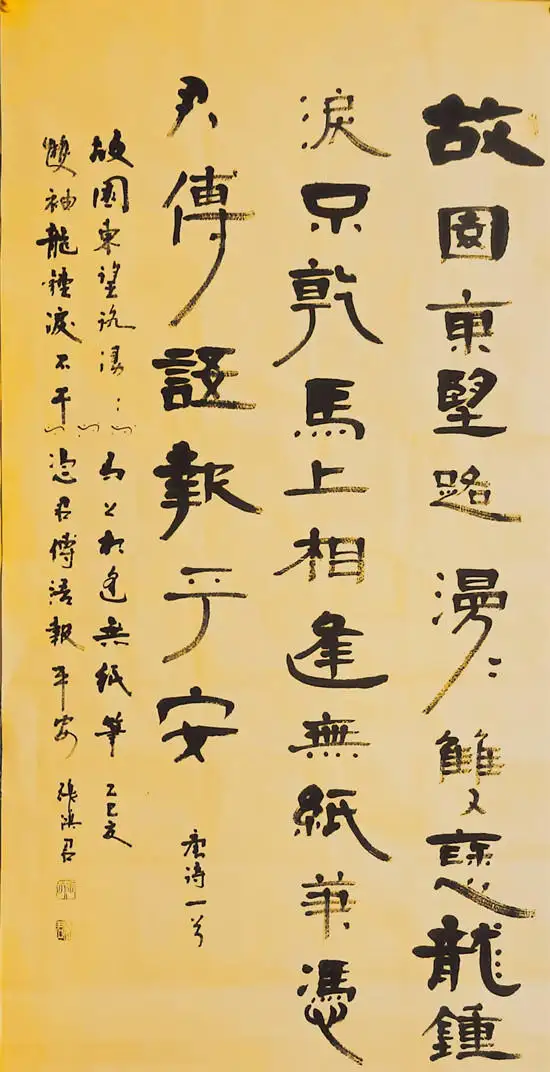 故園東望路漫〻雙袖龍鍾
淚不乾馬上相逢無紙筆憑
君傳語報平安
唐诗一首
故園東望路漫〻馬上相逢無紙筆 乙巳夏
雙袖龍鍾淚不干憑君傳語報平安 張